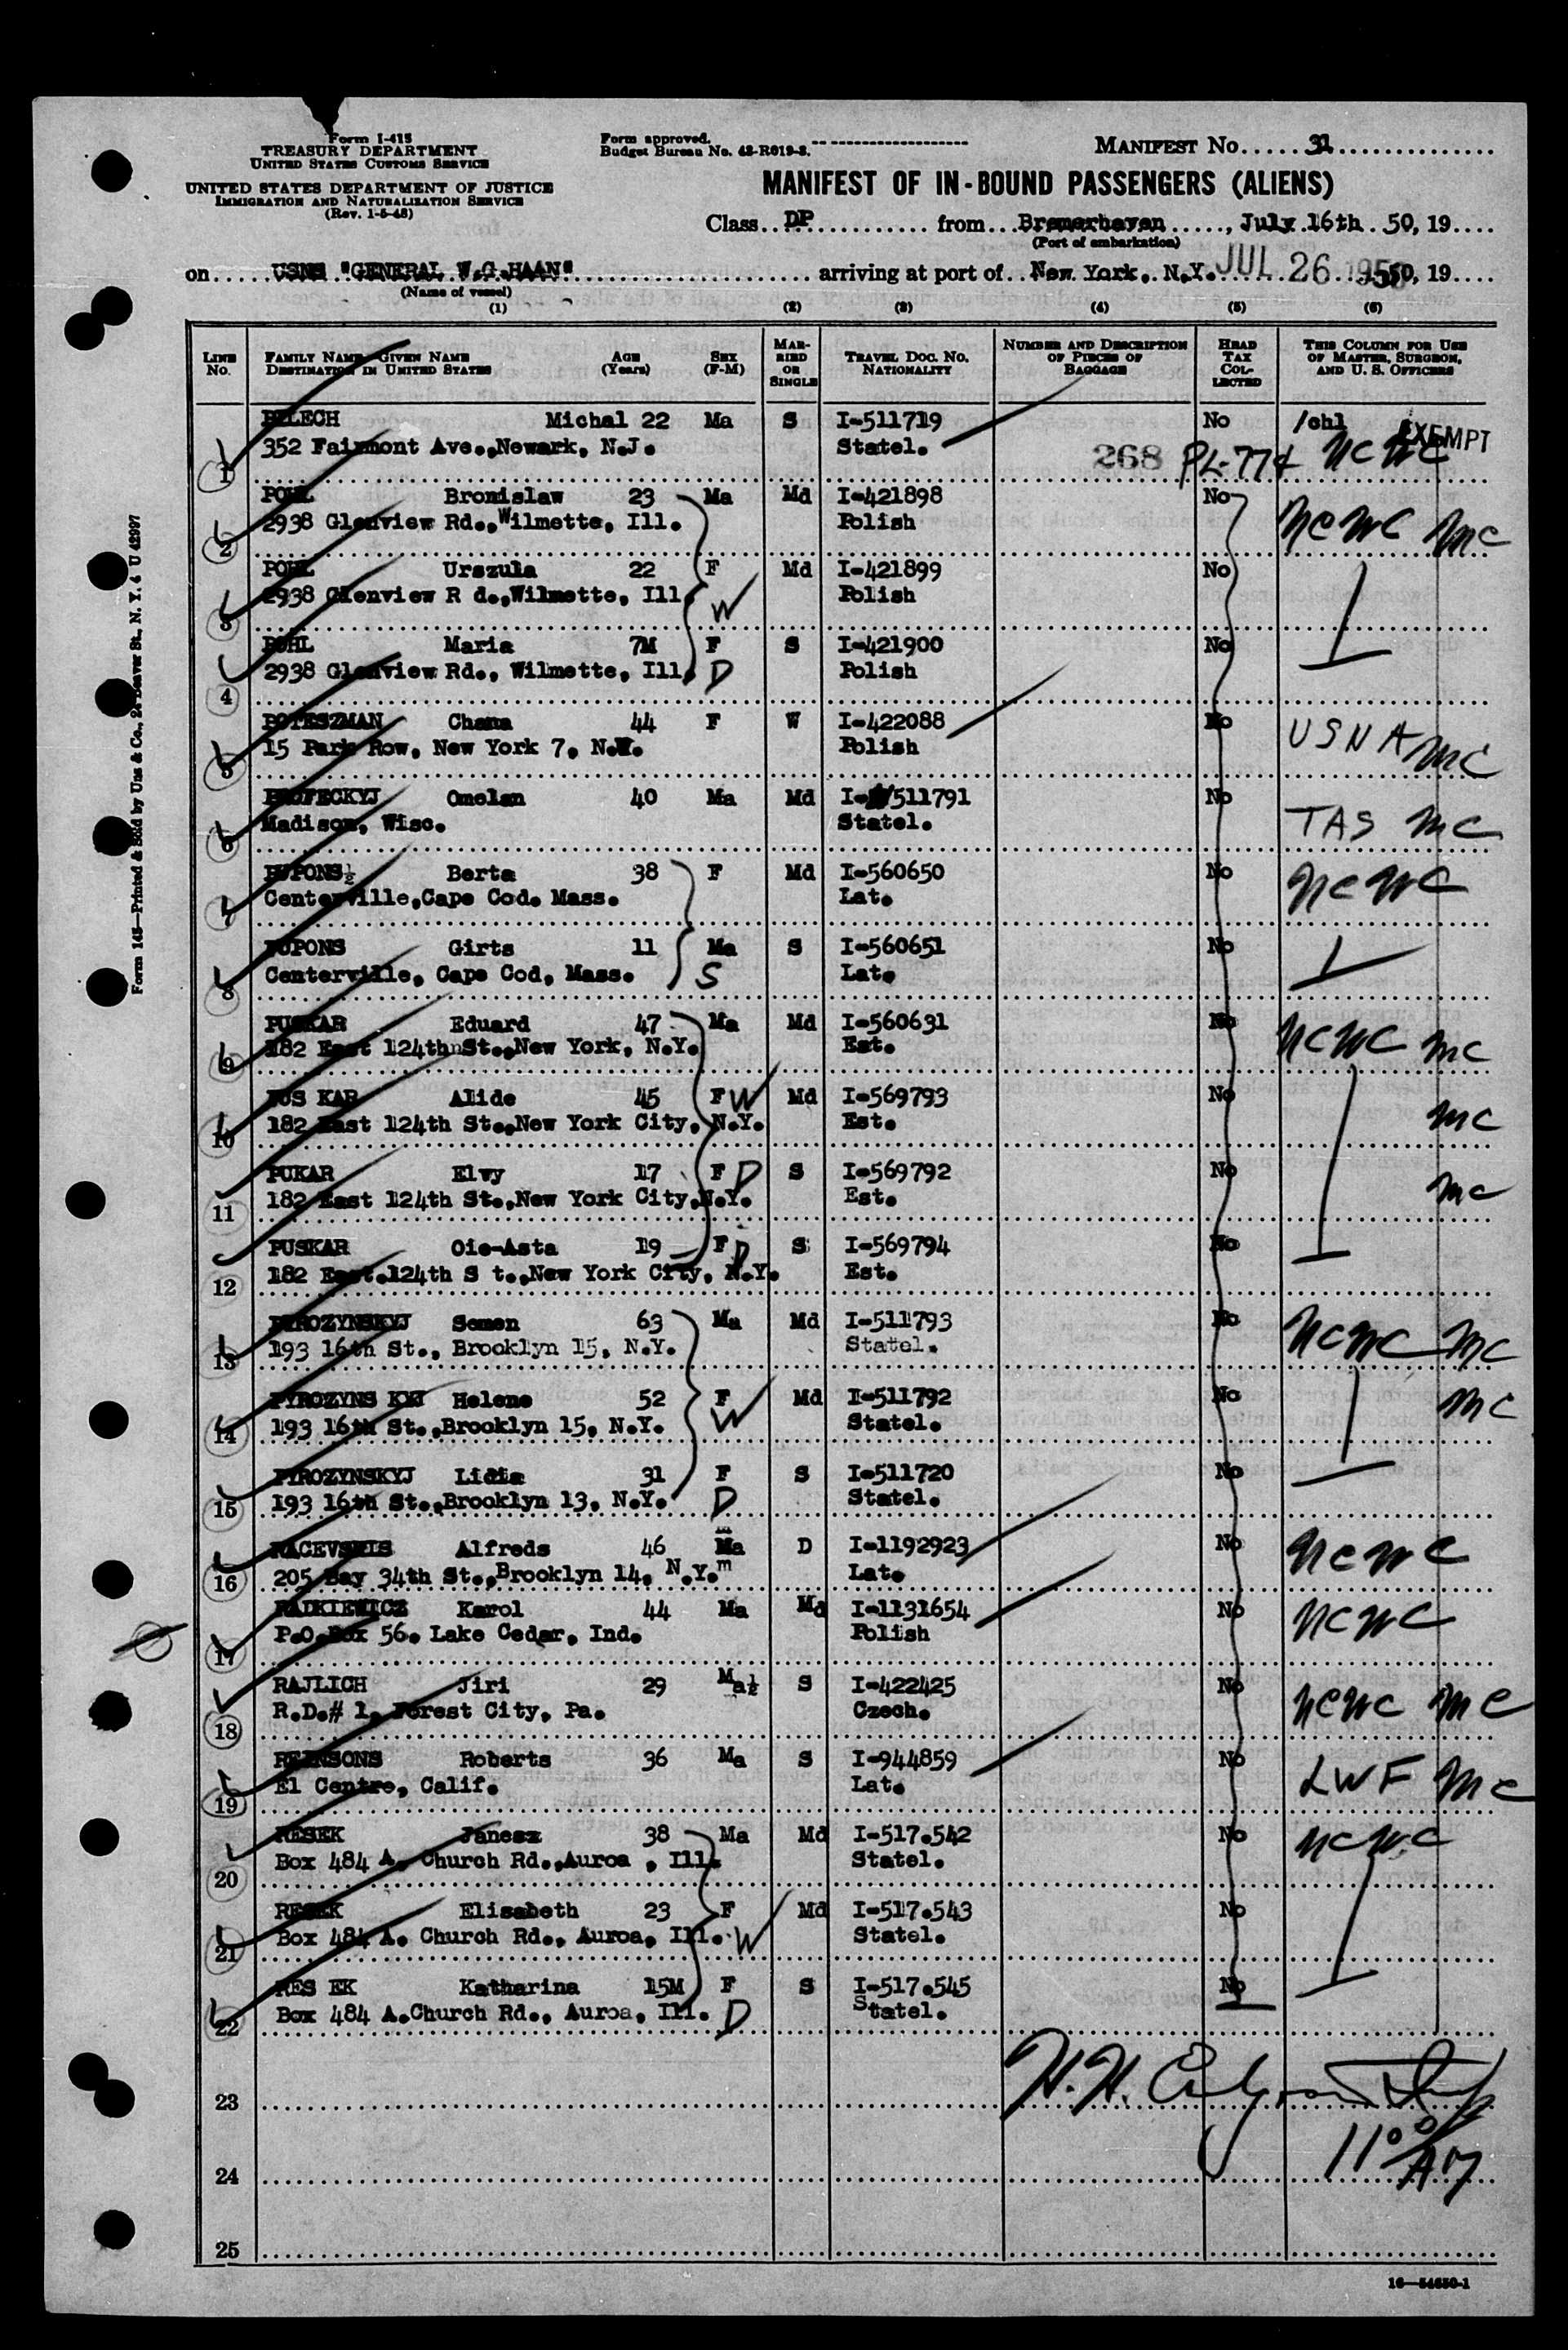 Form I-415
TREASURY DEPARTMENT
UNITED STATES CUSTOMS SERVICE
UNITED STATES DEPARTMENT OF JUSTICE
IMMIGRATION AND NATURALIZATION SERVICE
(Rev. 1-5-48)
Form approved.
Budget Bureau No. 43-R019-3.
MANIFEST No. 31
MANIFEST OF IN-BOUND PASSENGERS (ALIENS)
Class DP from Bremerhaven, July 16th 50, 19
(Port of embarkation)
on USNS "GENERAL W.G.HAAN" arriving at port of New York, N.Y. JUL 26 1950 50, 19
(Name of vessel)
(1) (2) (3) (4) (5) (6)
LINE No. FAMILY NAME—GIVEN NAME DESTINATION IN UNITED STATES AGE (Years) SEX (F-M) MARRIED OR SINGLE TRAVEL DOC. NO. NATIONALITY NUMBER AND DESCRIPTION OF PIECES OF BAGGAGE HEAD TAX COLLECTED THIS COLUMN FOR USE OF MASTER, SURGEON, AND U. S. OFFICERS
1 PELECH Michal 22 Ma S I-511719 No /chl EXEMPT
352 Fairmont Ave.,Newark, N.J. Statel. 268 PL-774 NCWC
2 POHL Bronislaw 23 Ma Md I-421898 No NCWC MC
2938 Glenview Rd.,Wilmette, Ill. Polish
3 POHL Urszula 22 F Md I-421899 No
2938 Glenview R d.,Wilmette, Ill. W Polish
4 POHL Maria 7M F S I-421900 No
2938 Glenview Rd., Wilmette, Ill. D Polish
5 POTESZMAN Chana 44 F W I-422088 No USNA MC
15 Park Row, New York 7, N.Y. Polish
6 PROFECKYJ Omelan 40 Ma Md I-511791 No TAS MC
Madison, Wisc. Statel.
7 PUPONS½ Berta 38 F Md I-560650 No NCWC
Centerville,Cape Cod. Mass. Lat.
8 PUPONS Girts 11 Ma S I-560651 No
Centerville, Cape Cod, Mass. S Lat.
9 PUSKAR Eduard 47 Ma Md I-560631 No NCWC MC
182 East 124thnSt.,New York, N.Y. Est.
10 PUS KAR Alide 45 F W Md I-569793 No MC
182 East 124th St.,New York City, N.Y. Est.
11 PUKAR Elvy 17 F D S I-569792 No MC
182 East 124th St.,New York City,N.Y. Est.
12 PUSKAR Oie-Asta 19 F D S I-569794 No
182 East.124th S t.,New York City, N.Y. Est.
13 PYROZYNSKYJ Semen 63 Ma Md I-511793 No NCWC MC
193 16th St., Brooklyn 15, N.Y. Statel.
14 PYROZYNS KYJ Helene 52 F Md I-511792 No MC
193 16th St.,Brooklyn 15, N.Y. W Statel.
15 PYROZYNSKYJ Lidia 31 F S I-511720 No
193 16th St.,Brooklyn 13, N.Y. D Statel.
16 RACEVSKIS Alfreds 46 Ma D I-1192923 No NCWC
205 Bay 34th St.,Brooklyn 14, N.Y.m Lat.
17 RADKIEWICZ Karol 44 Ma Md I-1131654 No NCWC
P.O.Box 56. Lake Cedar, Ind. Polish
18 RAJLICH Jiri 29 Ma½ S I-422425 No NCWC MC
R.D.# 1, Forest City, Pa. Czech.
19 REINSONS Roberts 36 Ma S I-944859 No LWF MC
El Centro, Calif. Lat.
20 RESEK Janesz 38 Ma Md I-517.542 No NCWC
Box 484 A. Church Rd.,Auroa , Ill. Statel.
21 RESEK Elisabeth 23 F Md I-517.543 No
Box 484 A. Church Rd., Auroa, Ill. W Statel.
22 RES EK Katharina 15M F S I-517.545 No
Box 484 A.Church Rd., Auroa, Ill. D Statel.
23 H.H.
24 11 00 AM
25
16—54650-1
Form 145—Printed & Sold by Unz & Co., 24 Beaver St., N. Y. 4 U 42997